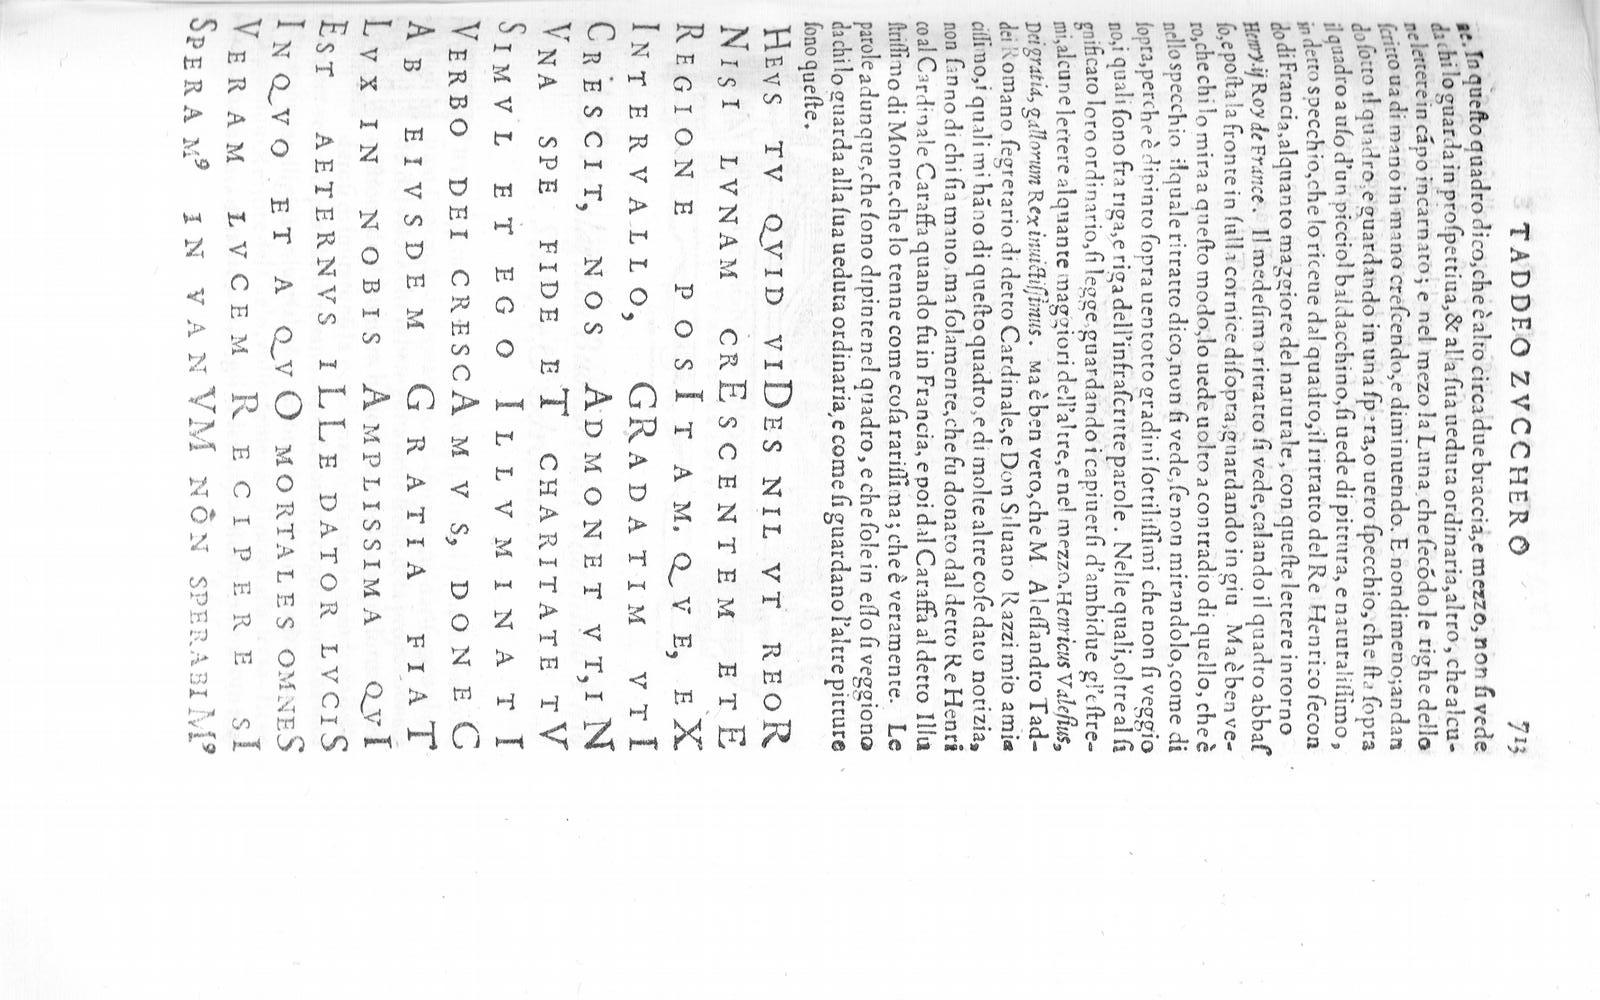 TADDEO ZVCCHERO 713
ne. In queſto quadro dico, che è alto circa due braccia, e mezzo, non ſi vede
da chi lo guarda in proſpettiua, & alla ſua ueduta ordinaria, altro, che alcu-
ne lettere in cãpo incarnato; e nel mezo la Luna, che ſecõdo le righe dello
ſcritto ua di mano in mano creſcendo, e diminuendo. E nondimeno, andan
do ſotto il quadro, e guardando in una ſpera, o uero ſpecchio, che ſta ſopra
il quadro a uſo d'un picciol baldacchino, ſi uede di pittura, e naturaliſſimo,
in detto specchio, che lo riceue dal quadro, il ritratto del Re Henrico ſecon
do di Francia, alquanto maggiore del naturale, con queſte lettere intorno
Henry ij Roy de France. Il medeſimo ritratto ſi vede, calando il quadro abbaſ
ſo, e poſta la fronte in ſulla cornice di ſopra, guardando in giu. Ma è ben ve-
ro, che chi lo mira a queſto modo, lo uede uolto a contradio di quello, che è
nello specchio. il quale ritratto dico, non ſi vede, ſe non mirandolo, come di
ſopra, perche è dipinto ſopra uentotto gradini ſottiliſſimi che non ſi veggio
no, i quali ſono fra riga, e riga dell'infraſcritte parole. Nelle quali, oltre al ſi
gnificato loro ordinario, ſi legge, guardando i capiuerſi d'ambidue gl'eſtre-
mi, alcune lettere alquante maggiori dell'altre, e nel mezzo, Henricus Valeſius,
Dei gratia, gallorum Rex inuictiſſimus. Ma è ben vero, che M. Aleſſandro Tad-
dei Romano ſegretario di detto Cardinale, e Don Siluano Razzi mio amic
ciſſimo, i quali mi hãno di queſto quadro, e di molte altre coſe dato notizia,
non ſanno di chi ſia mano, ma ſolamente, che fu donato dal detto Re Henri
co al Cardinale Caraffa quando fu in Francia, e poi dal Caraffa al detto Illu
ſtriſſimo di Monte, che lo tenne come coſa rariſſima; che è veramente. Le
parole adunque, che ſono dipinte nel quadro, e che ſole in eſſo ſi veggiono
da chi lo guarda alla ſua ueduta ordinaria, e come ſi guardano l'altre pitture
ſono queſte.
HEVS TV QVID VIDES NIL VT REOR
NISI LVNAM CRESCENTEM ET E
REGIONE POSITAM. QVE, EX
INTERVALLO, GRADATIM VTI
CRESCIT, NOS ADMONET VT, IN
VNA SPE FIDE ET CHARITATE TV
SIMVL ET EGO ILLVMINATI
VERBO DEI CRESCAMVS, DONEC
AB EIVSDEM GRATIA FIAT
LVX IN NOBIS AMPLISSIMA QVI
EST AETERNVS ILLE DATOR LVCIS
IN QVO ET A QVO MORTALES OMNES
VERAM LVCEM RECIPERE SI
SPERAMꝰ IN VANVM NÔN SPERABIMꝰ